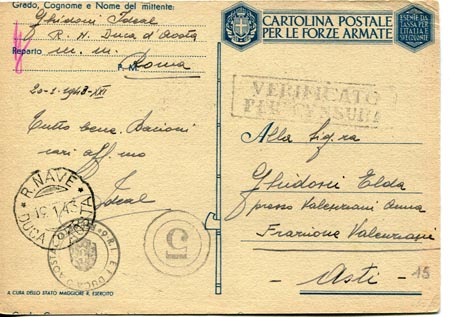 Grado, Cognome e Nome del mittente:
Ghidoni Ideal
R. N. Duca d'Aosta
Reparto m. m.
P. M. Roma
20-1-1943-XXI
Tutto bene. Bacioni
cari aff.mo
Ideal
R. NAVE
19.1.43
DUCA D'AOSTA
5
A CURA DELLO STATO MAGGIORE R. ESERCITO
CARTOLINA POSTALE
PER LE FORZE ARMATE
ESENTE DA
TASSA PER
L'ITALIA E
VERIFICATO
PER CENSURA
Alla Sig.ra
Ghidoni Elda
presso Valenzani Anna
Frazione Valenzani
Asti
15